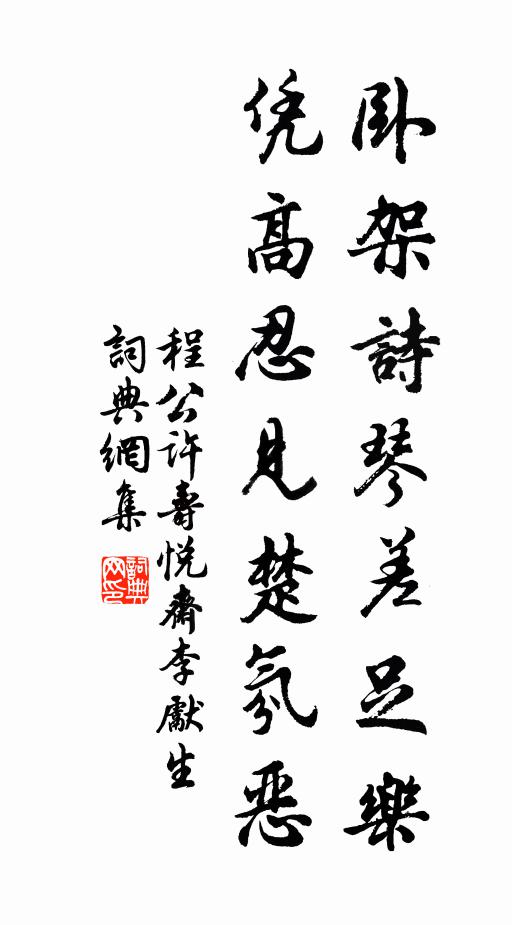 卧架詩琴差足樂
凭高忍見楚氛惡
程公許壽悅齋李獻生
詞典網集
詞典網印